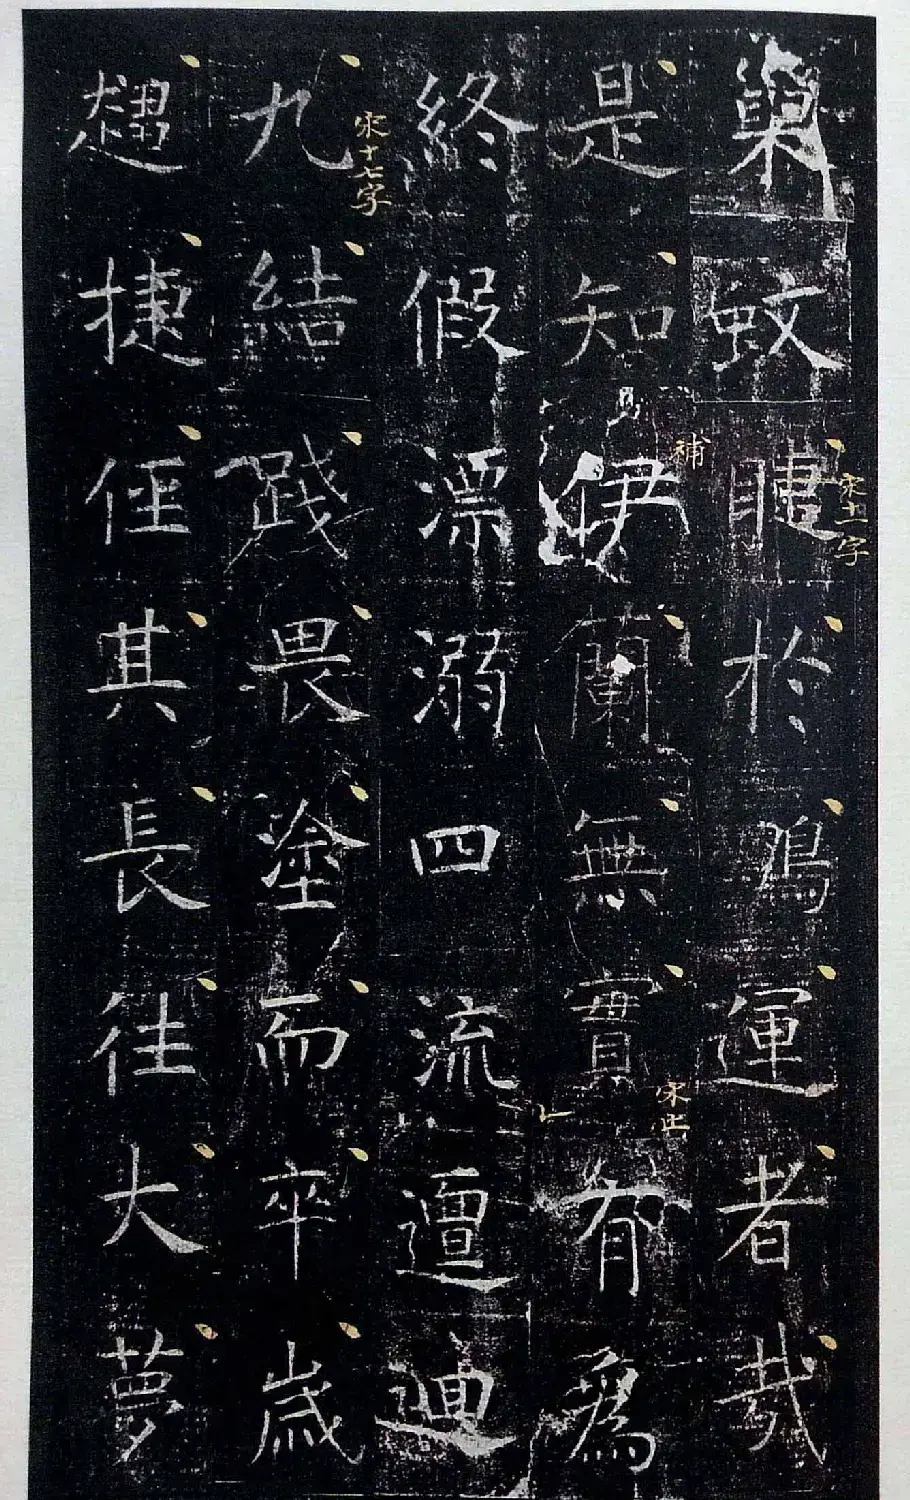 巢蚊睫於運者哉
宋十一字
是知伊蘭無實有為
補
宋止
終假漂溺四流邅迴
九結踐畏塗而卒歲
宋十七字
趨捷徑其長往大夢